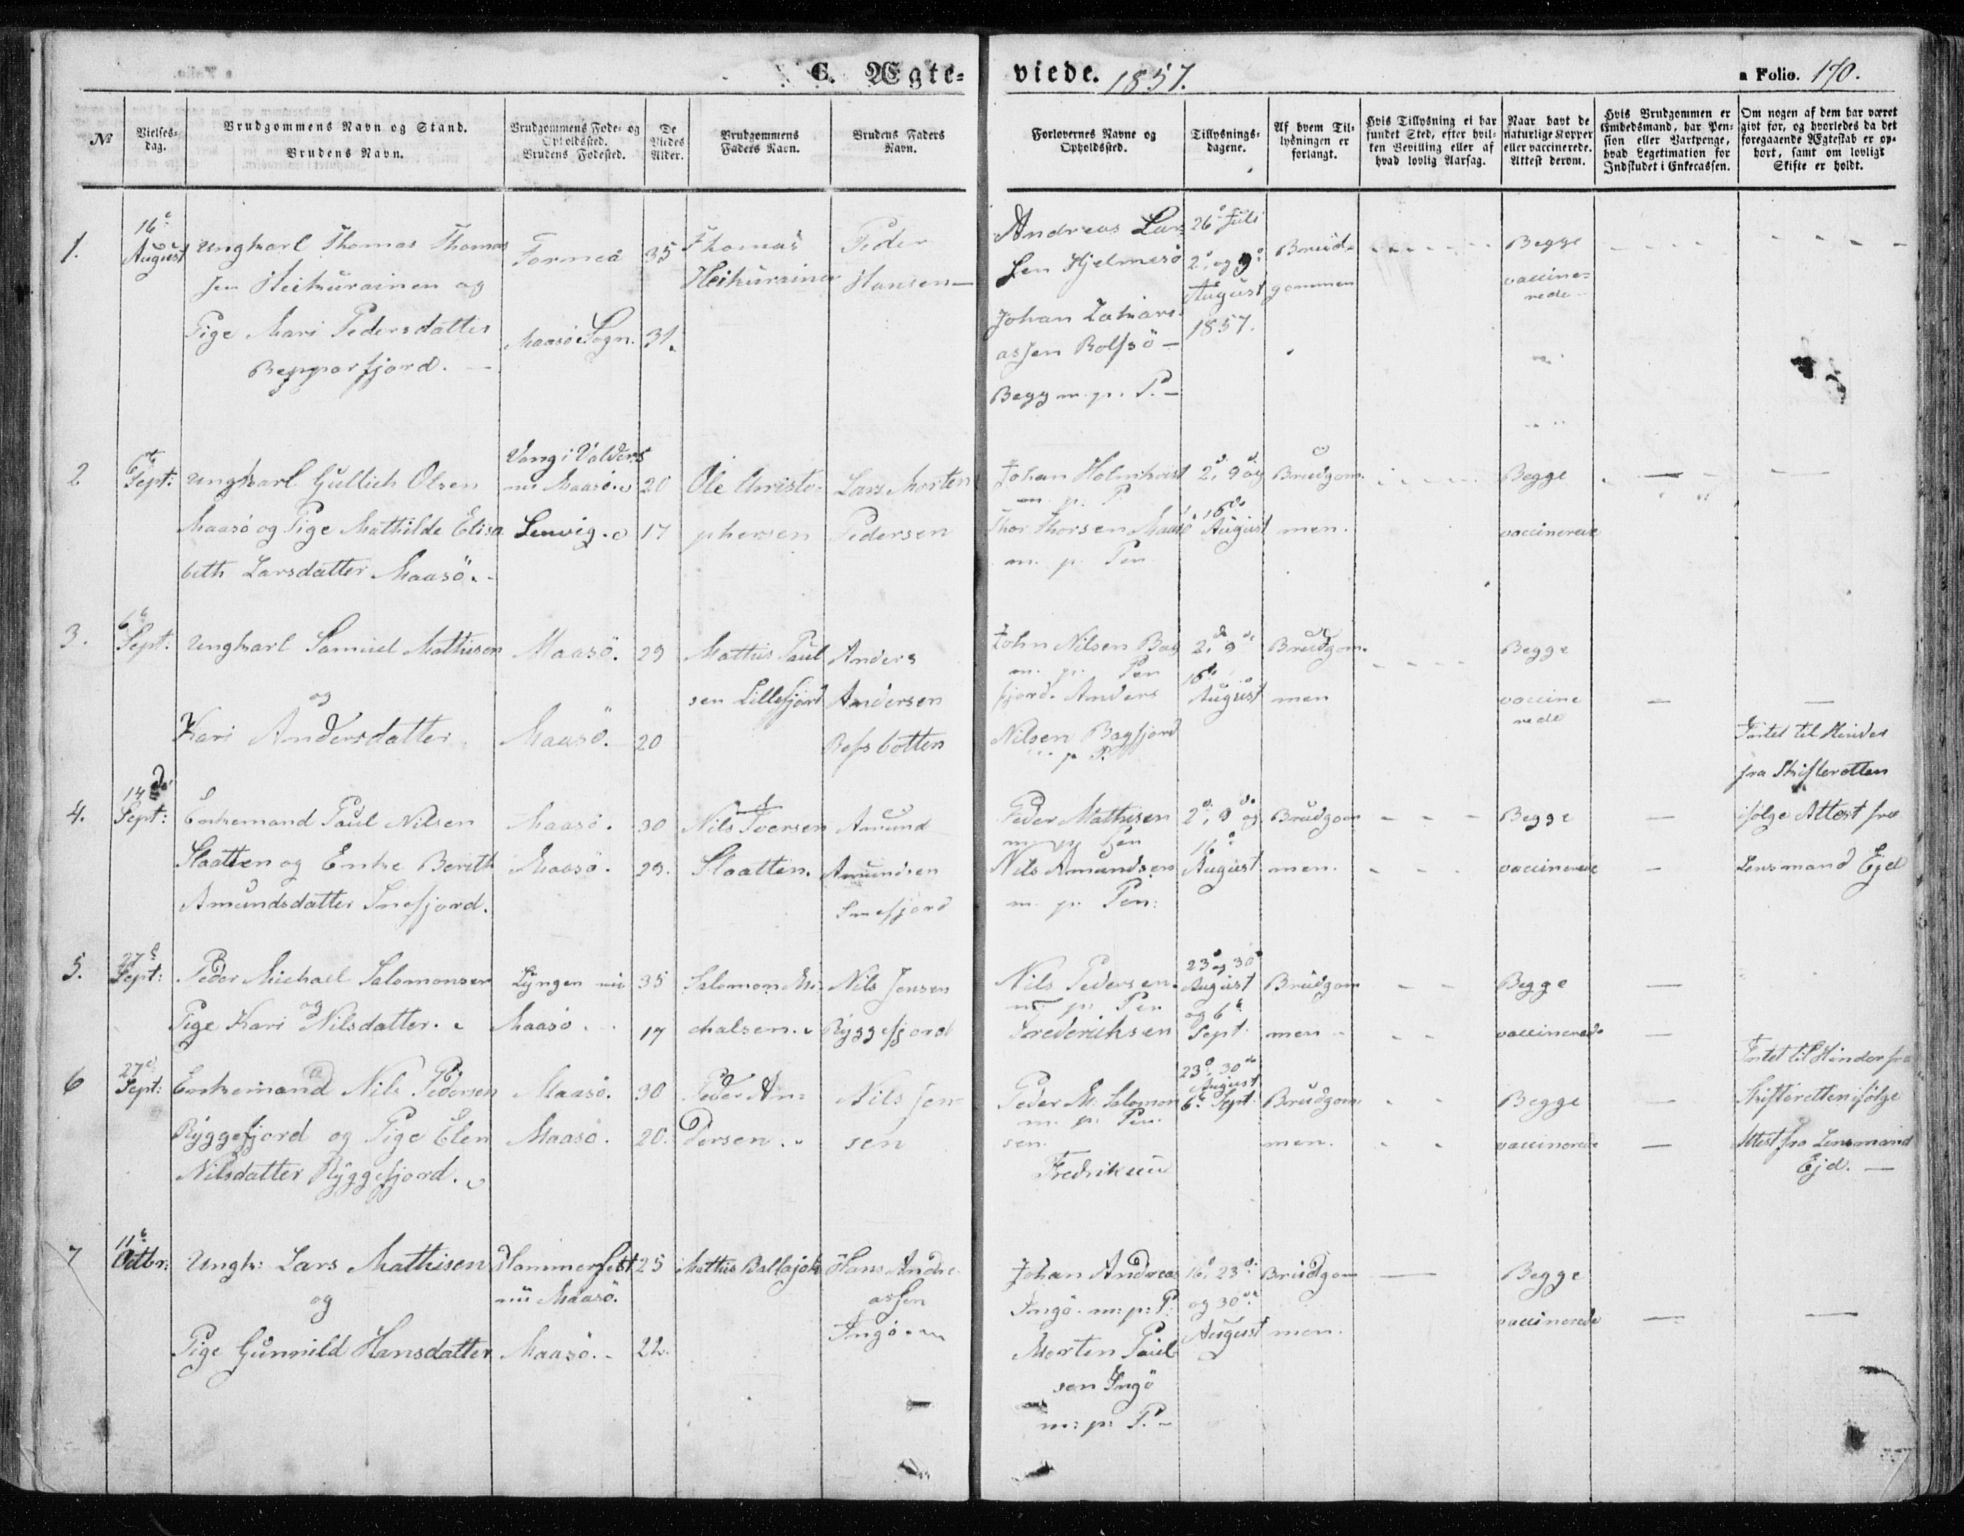 C. Ægteviede. 1857.
a Folio. 170.
№
Vielses-dag.
Brudgommens Navn og Stand.
Brudens Navn.
Brudgommens Føde- og Opholdssted.
Brudens Fødested.
De Viedes Alder.
Brudgommens Faders Navn.
Brudens Faders Navn.
Forlovernes Navne og Opholdssted.
Tillysnings-dagene.
Af hvem Tillysningen er forlangt.
Hvis Tillysning ei har fundet Sted, efter hvilken Bevilling eller af hvad lovlig Aarsag.
Naar havt de naturlige Kopper eller vaccinerede. Attest derom.
Hvis Brudgommen er Embedsmand, har Pension eller Vartpenge, hvad Legetimation for Indskudet i Enkecassen.
Om nogen af dem har været givt før, og hvorledes da det foregaaende Ægteskab er ophørt, samt om lovligt Skifte er holdt.
1. 16 August
Ungkarl Thomas Thomas
sen Heikurainen og
Pige Mari Pedersdatter
Repparfjord.
Torneå 35
Maasöe Sogn. 31.
Thomas Heikurainen
Peder Hansen
Andreas Lar-
sen Hjelmesö
Johan Zakari-
assen Rolfsö
Begg m. p. P.
26 Juli
2, og 9
August
1857.
Brud-
gommen
Begge
vaccine-
rede
2 6 Sept:
Ungkarl Gullich Olsen
Maasö og Pige Mathilde Elisa
beth Larsdatter Maasö.
Vang i Valders
nu Maasöe 20
Lenvig. 17
Ole Christo-
phersen
Lars Morten
Pedersen
Johan Holmkvist
m. p. P
Thor Thorsen Maasö
m. p. Pen
2, 9 og
16de
August
Brudgom-
men.
Begge
vaccinerede
3. 6 Sept.
Ungkarl Samuel Mathisen
og
Kari Andersdatter
Maasö. 29
Maasö. 20
Mathis Paul
sen Lillefjord
Anders
Andersen
Refsbotten
John Nilsen Bag
m. p. Pen
fjord. Anders
Nilsen Bagfjord
p P.
2, 9
16de
August
Brudgom-
men
Begge
vaccine
rede
4. 14de Sept:
Enkemand Paul Nilsen
Slaatten og Enke Berith
Amundsdatter Snefjord.
Maasö. 30
Maasö. 29.
Nils Iversen
Slaatten.
Amund
Amundsen
Snefjord
Peder Mathisen
m. p. Pen
Nils Amundsen
m. p. Pen:
2, 9 og
16
August
Brudgom
men.
Begge
vaccinerede
Intet til Hinder
fra Skifteretten
ifölge Attest fra
Lensmand Ejd
5. 27 Sept:
Peder Michael Salomonsen
og
Pige Kari Nilsdatter.
Lyngen nu 35
Maasö 17
Salomon Mi-
chalsen.
Nils Jensen
Ryggefjord
Nils Pedersen.
m. p. Pen
Frederiksen
23 og 30
August
og 6
Sept.
Brudgom
men
Begge
vaccinerede
6 27 Sept:
Enkemand Nils Pedersen
Ryggefjord og Pige Elen
Nilsdatter Ryggefjord.
Maasö. 30
Maasö. 20.
Peder An-
dersen.
Nils Jen-
sen
Peder M. Salomon
m. p. Pen.
sen.
Fredriksen
23, 30
August
6 Sept.
Brudgom
men.
Begge
vaccinerede
Intet til Hinder fra
Skifteretten ifölge
Attest fra Lensmand
Ejd.
7 11 Octbr:
Ungk: Lars Mathisen
og
Pige Gunnild Hansdatter
Hammerfest 25
nu Maasö.
Maasö. 22.
Mathis Ballajok
Hans Andre
assen
Ingö
Johan Andreas
Ingö. m: p: P.
Morten Paul
sen Ingö
m: p: P.
16, 23
og 30
August
Brudgom
men.
Begge
vaccinerede